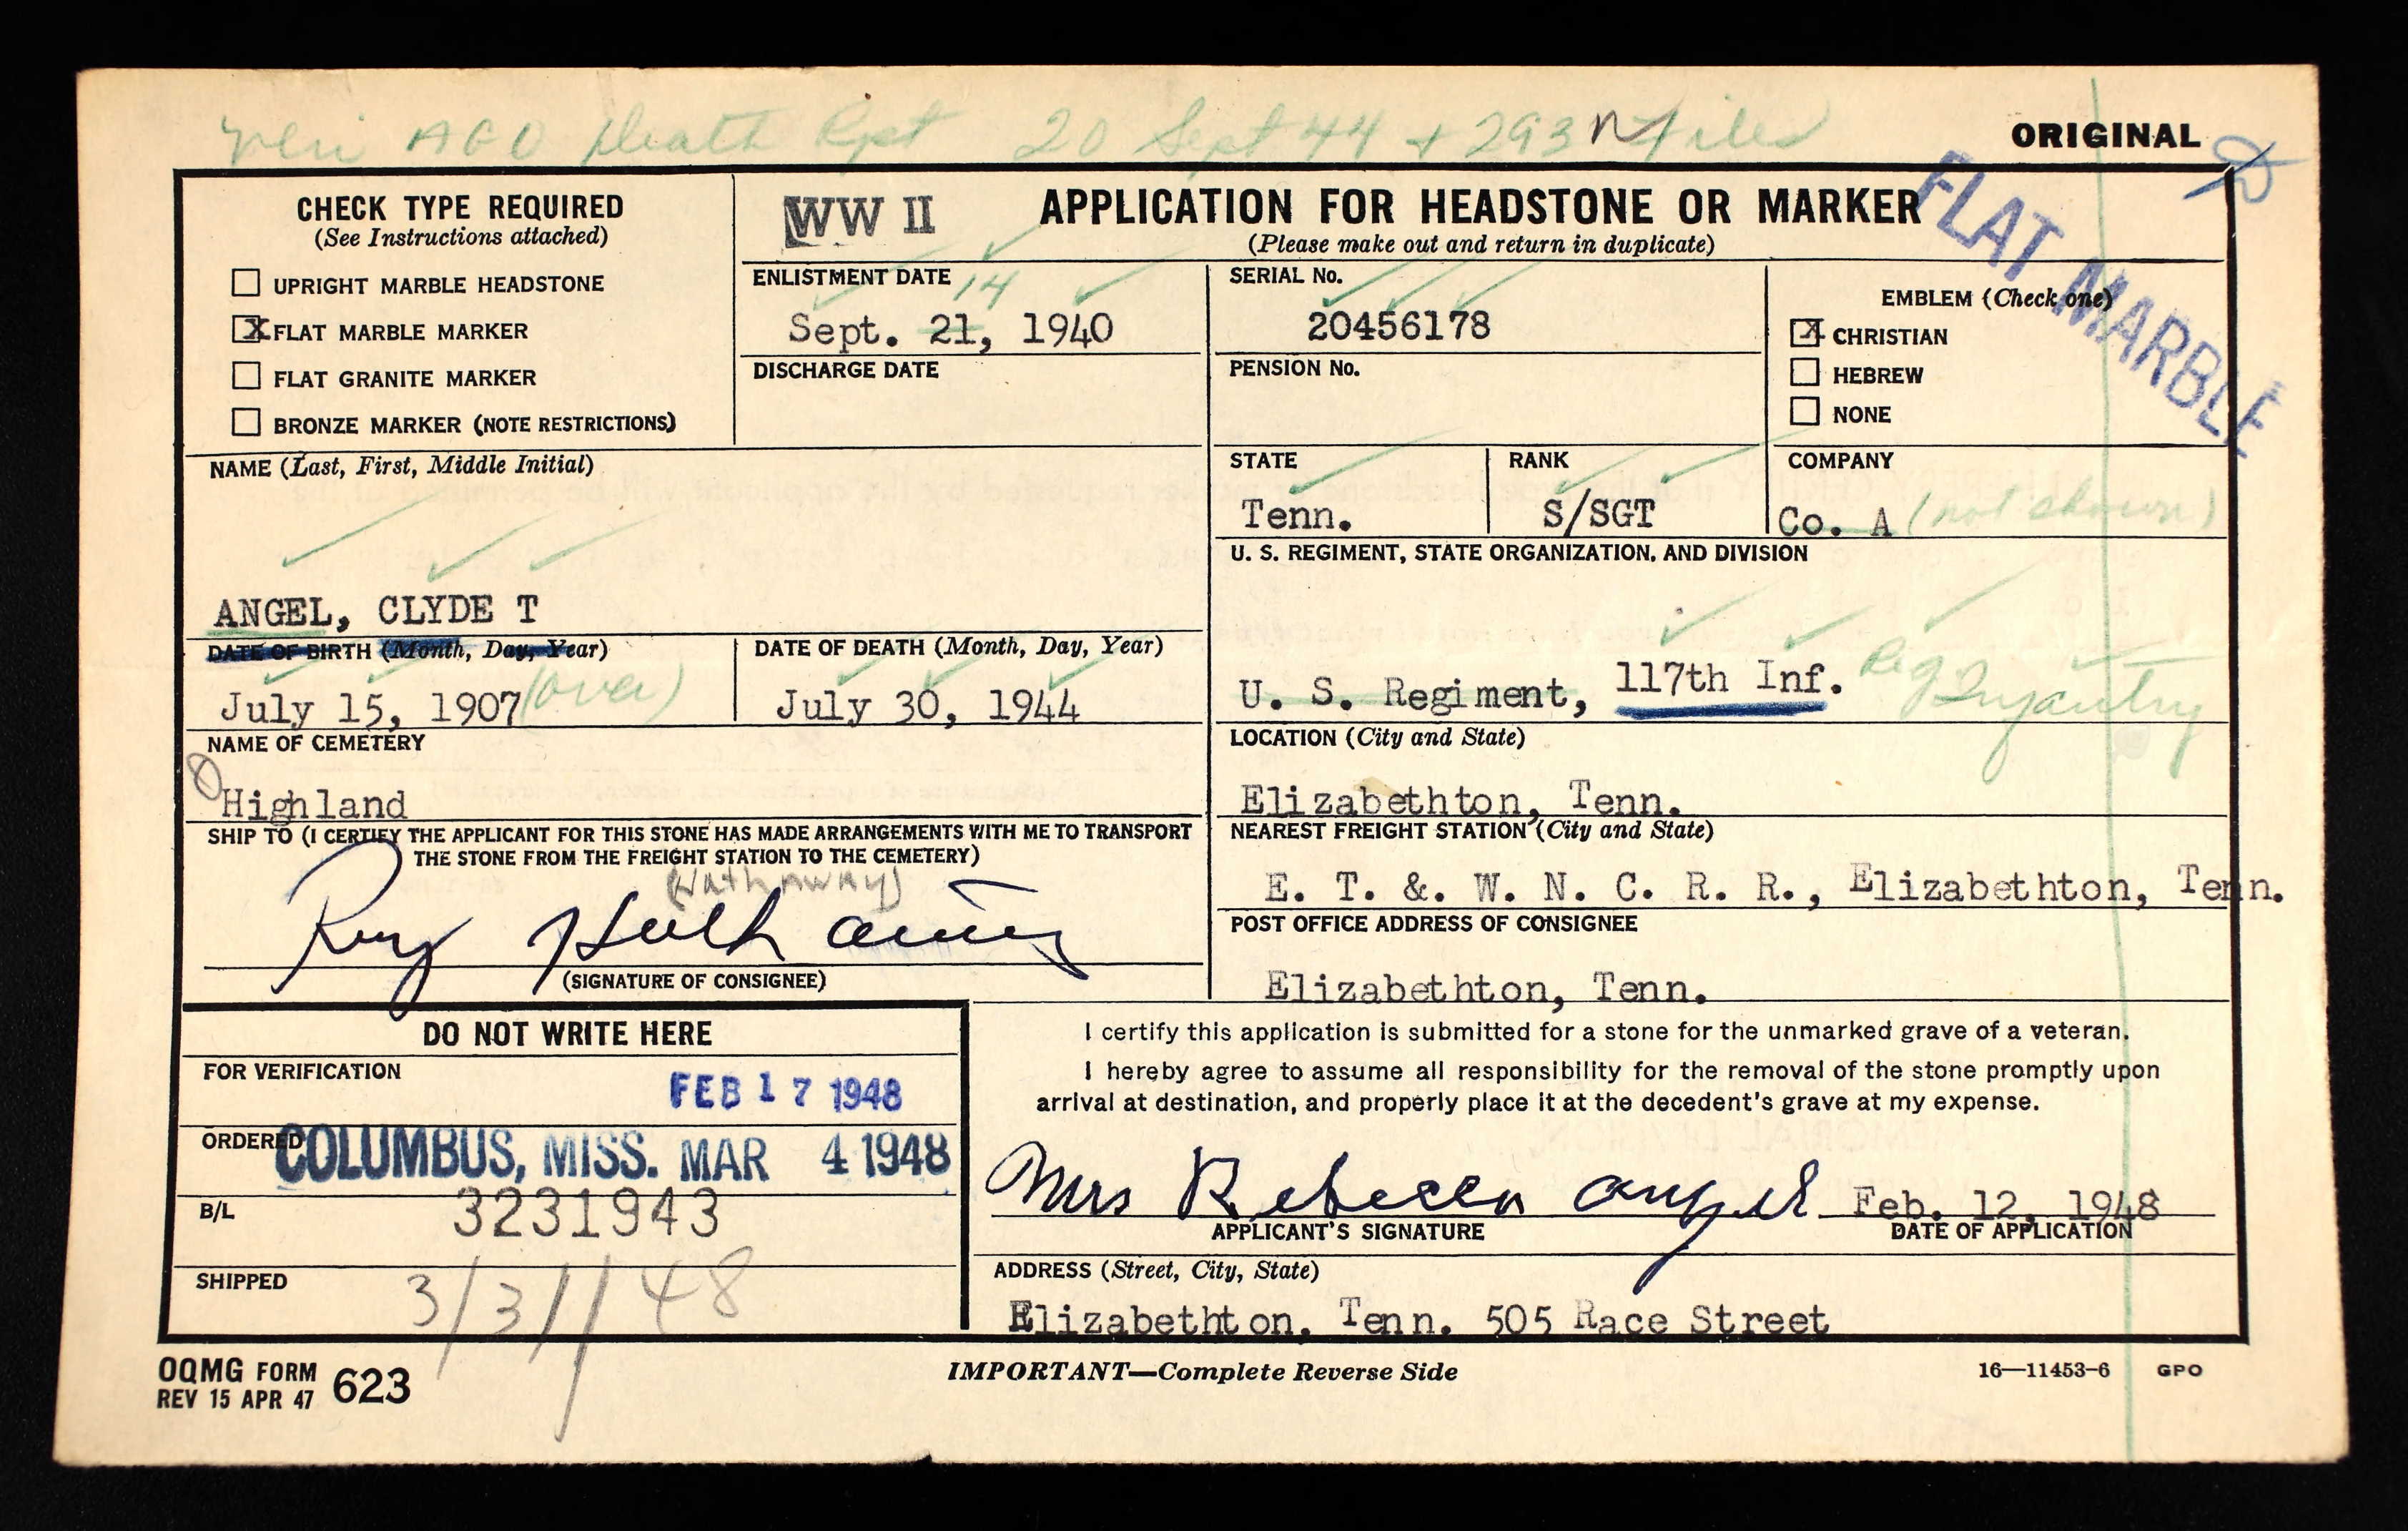 Veri AGO Death Rpt 20 Sept 44 + 293 Files
ORIGINAL
CHECK TYPE REQUIRED
(See Instructions attached)
UPRIGHT MARBLE HEADSTONE
X FLAT MARBLE MARKER
FLAT GRANITE MARKER
BRONZE MARKER (NOTE RESTRICTIONS)
WW II
APPLICATION FOR HEADSTONE OR MARKER
(Please make out and return in duplicate)
FLAT MARBLE
ENLISTMENT DATE
14
Sept. 21, 1940
DISCHARGE DATE
SERIAL No.
20456178
PENSION No.
EMBLEM (Check one)
X CHRISTIAN
HEBREW
NONE
NAME (Last, First, Middle Initial)
ANGEL, CLYDE T
STATE
Tenn.
RANK
S/SGT
COMPANY
Co. A (not shown)
U. S. REGIMENT, STATE ORGANIZATION, AND DIVISION
U. S. Regiment, 117th Inf. Reg Infantry
DATE OF BIRTH (Month, Day, Year)
July 15, 1907 (over)
DATE OF DEATH (Month, Day, Year)
July 30, 1944
NAME OF CEMETERY
Highland
LOCATION (City and State)
Elizabethton, Tenn.
SHIP TO (I CERTIFY THE APPLICANT FOR THIS STONE HAS MADE ARRANGEMENTS WITH ME TO TRANSPORT
THE STONE FROM THE FREIGHT STATION TO THE CEMETERY)
(Hathaway)
Roy Hathaway
(SIGNATURE OF CONSIGNEE)
NEAREST FREIGHT STATION (City and State)
E. T. &. W. N. C. R. R., Elizabethton, Tenn.
POST OFFICE ADDRESS OF CONSIGNEE
Elizabethton, Tenn.
DO NOT WRITE HERE
FOR VERIFICATION
FEB 17 1948
ORDERED
COLUMBUS, MISS. MAR 4 1948
B/L
3231943
SHIPPED
3/31/48
I certify this application is submitted for a stone for the unmarked grave of a veteran.
I hereby agree to assume all responsibility for the removal of the stone promptly upon
arrival at destination, and properly place it at the decedent's grave at my expense.
Mrs Rebecca Angel Feb. 12, 1948
APPLICANT'S SIGNATURE
DATE OF APPLICATION
ADDRESS (Street, City, State)
Elizabethton, Tenn. 505 Race Street
OQMG FORM 623
REV 15 APR 47
IMPORTANT—Complete Reverse Side
16—11453-6 GPO